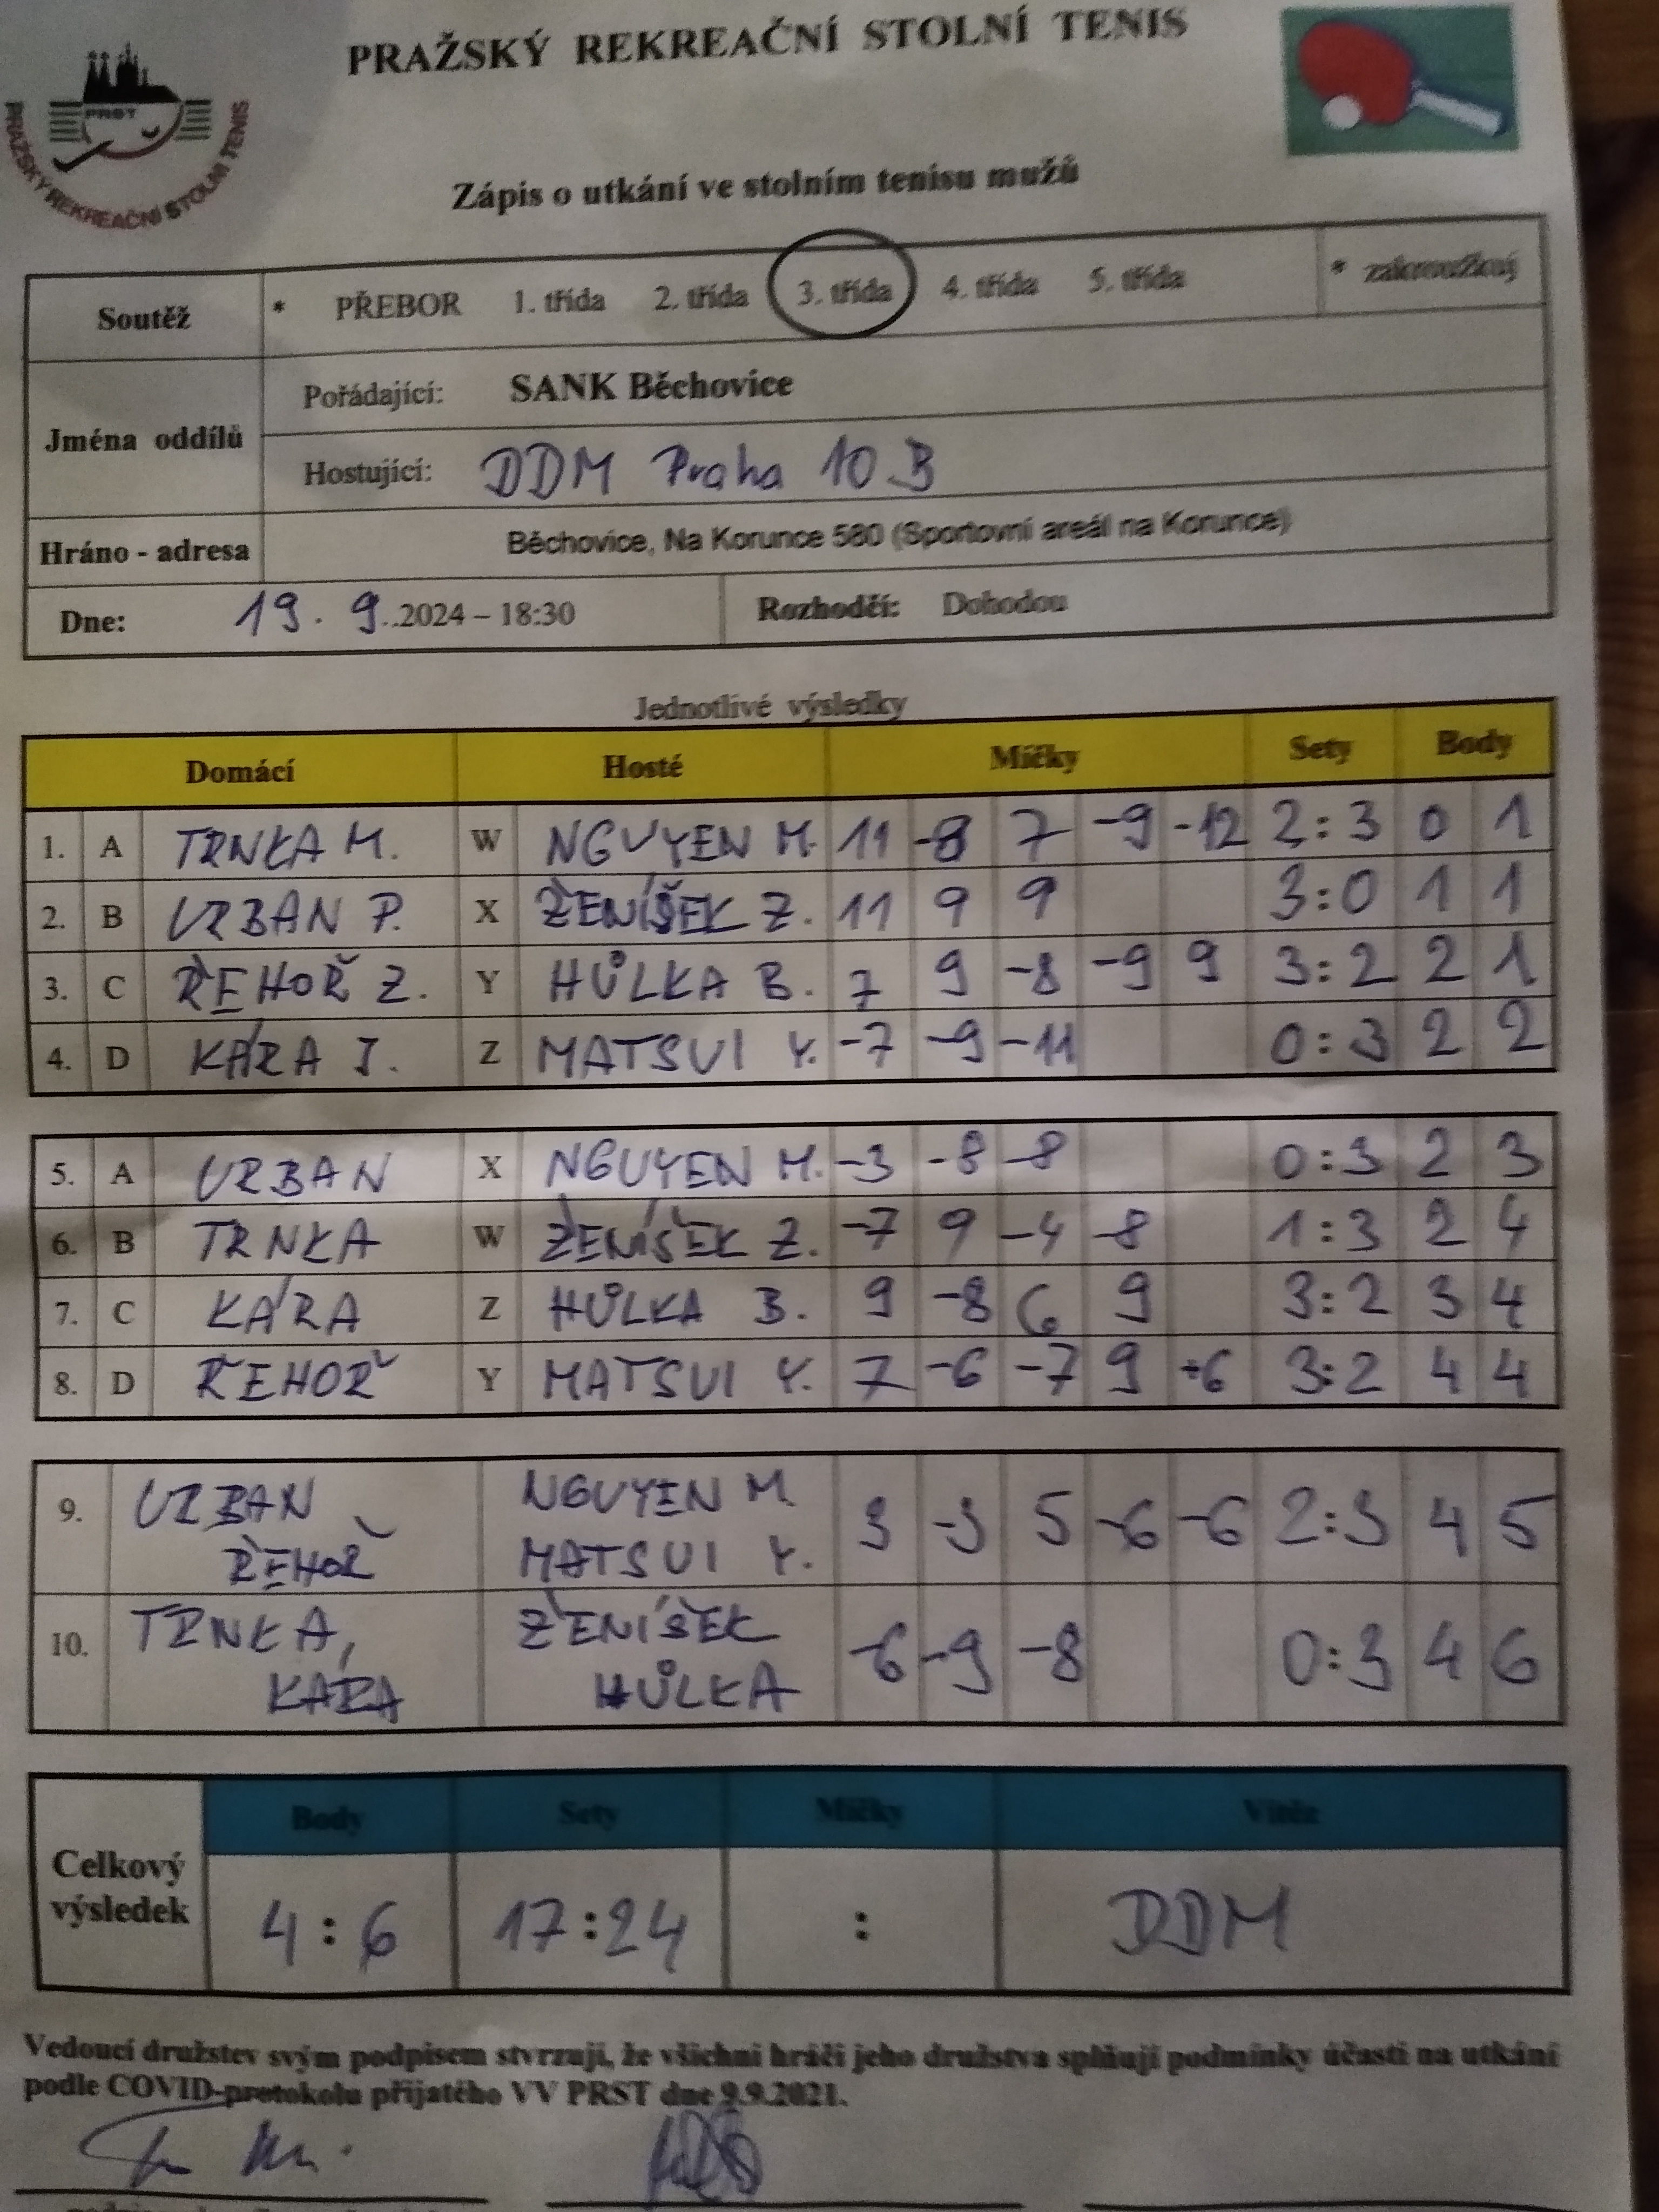 PRAŽSKÝ REKREAČNÍ STOLNÍ TENIS
PRST
PRAŽSKÝ REKREAČNÍ STOLNÍ TENIS
Zápis o utkání ve stolním tenisu mužů
Soutěž * PŘEBOR 1. třída 2. třída 3. třída 4. třída 5. třída * zakroužkuj
Jména oddílů
Pořádající: SANK Běchovice
Hostující: DDM Praha 10 B
Hráno - adresa Běchovice, Na Korunce 580 (Sportovní areál na Korunce)
Dne: 19. 9..2024 – 18:30 Rozhodčí: Dohodou
Jednotlivé výsledky
Domácí Hosté Míčky Sety Body
1. A TRNKA M. W NGUYEN M. 11 -8 7 -9 -12 2:3 0 1
2. B URBAN P. X ŽENÍŠEK Z. 11 9 9 3:0 1 1
3. C ŘEHOŘ Z. Y HŮLKA B. 7 9 -8 -9 9 3:2 2 1
4. D KÁRA J. Z MATSUI Y. -7 -9 -11 0:3 2 2
5. A URBAN X NGUYEN M. -3 -8 -8 0:3 2 3
6. B TRNKA W ŽENÍŠEK Z. -7 9 -4 -8 1:3 2 4
7. C KÁRA Z HŮLKA B. 9 -8 6 9 3:2 3 4
8. D ŘEHOŘ Y MATSUI Y. 7 -6 -7 9 +6 3:2 4 4
9. URBAN NGUYEN M. 3 -3 5 -6 -6 2:3 4 5
ŘEHOŘ MATSUI Y.
10. TRNKA, ŽENÍŠEK -6 -9 -8 0:3 4 6
KÁRA HŮLKA
Body Sety Míčky Vítěz
Celkový výsledek 4:6 17:24 : DDM
Vedoucí družstev svým podpisem stvrzují, že všichni hráči jeho družstva splňují podmínky účasti na utkání
podle COVID-protokolu přijatého VV PRST dne 9.9.2021.